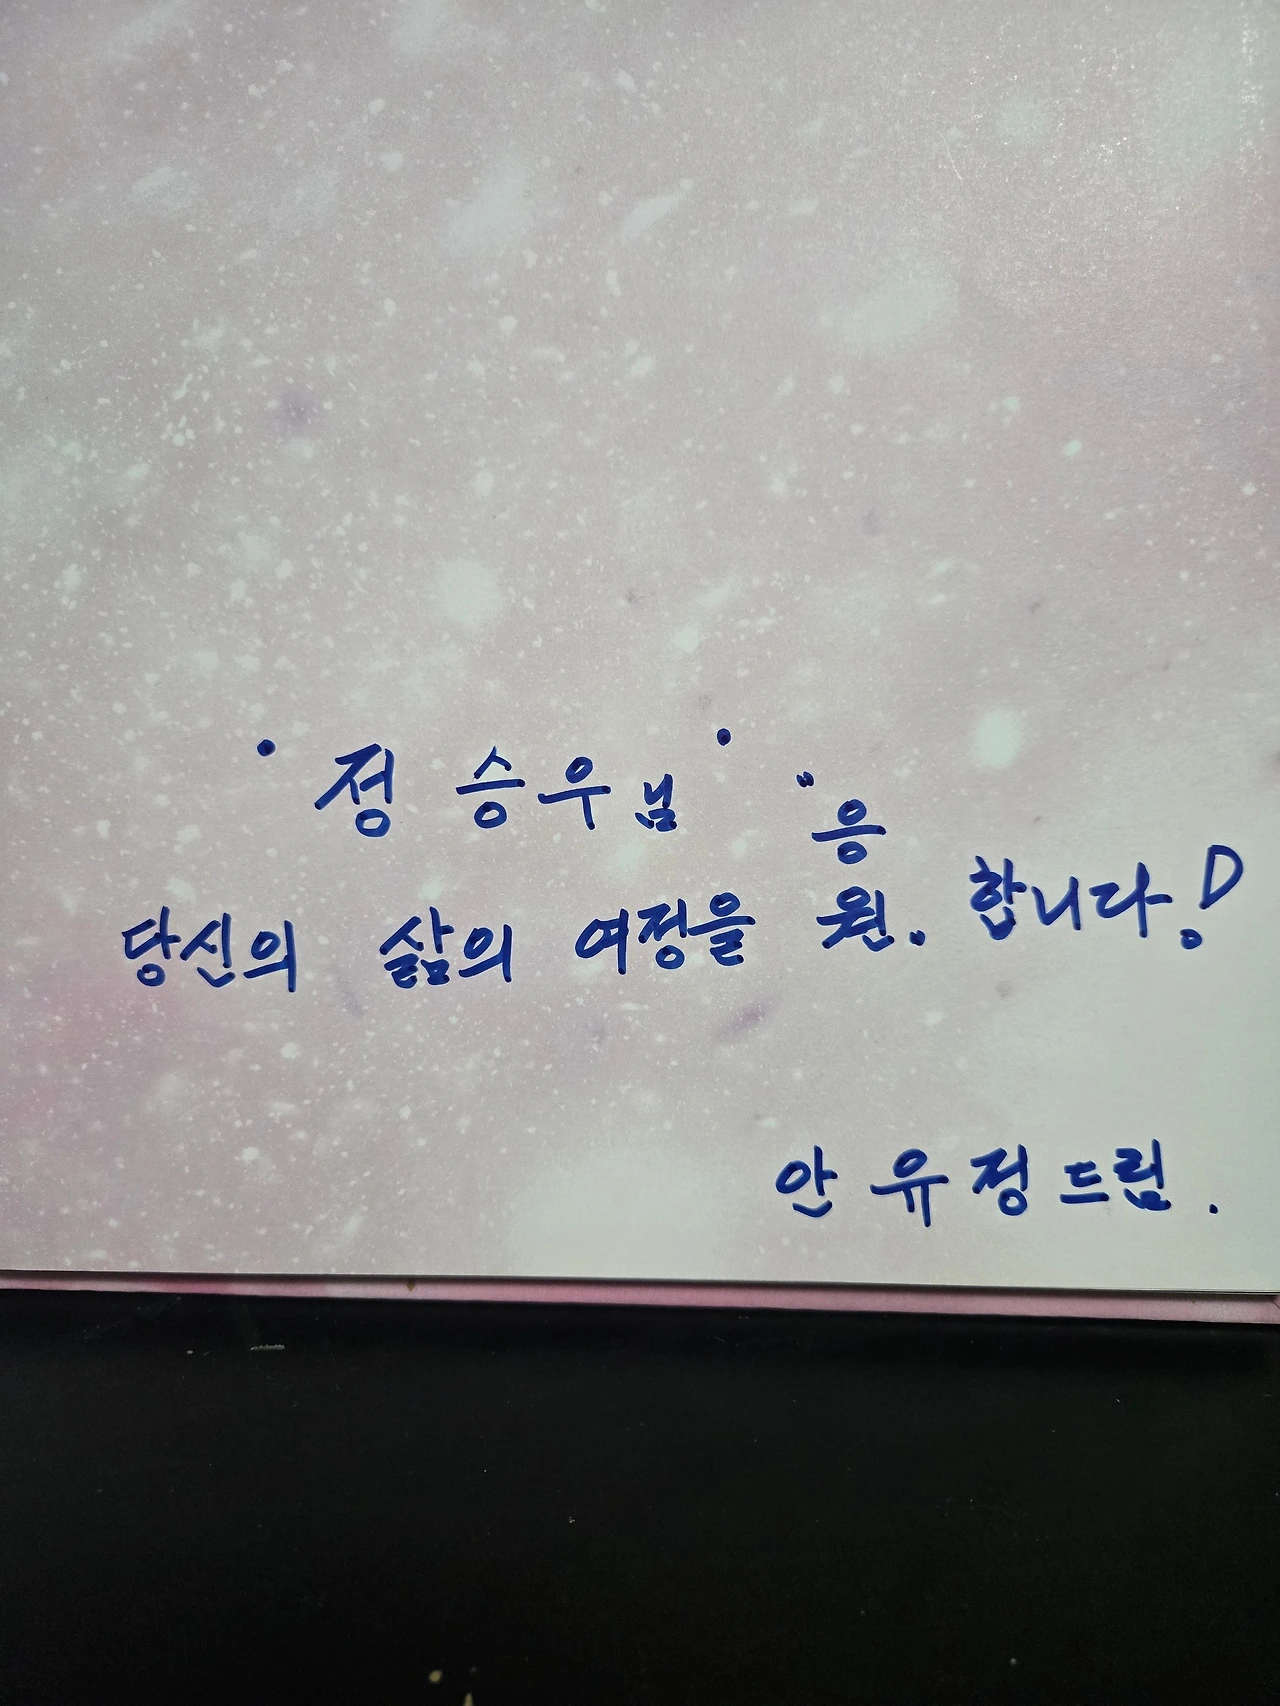 · 정 승우님 ·
당신의 삶의 여정을 "응원. 합니다!
안 유 정 드림.